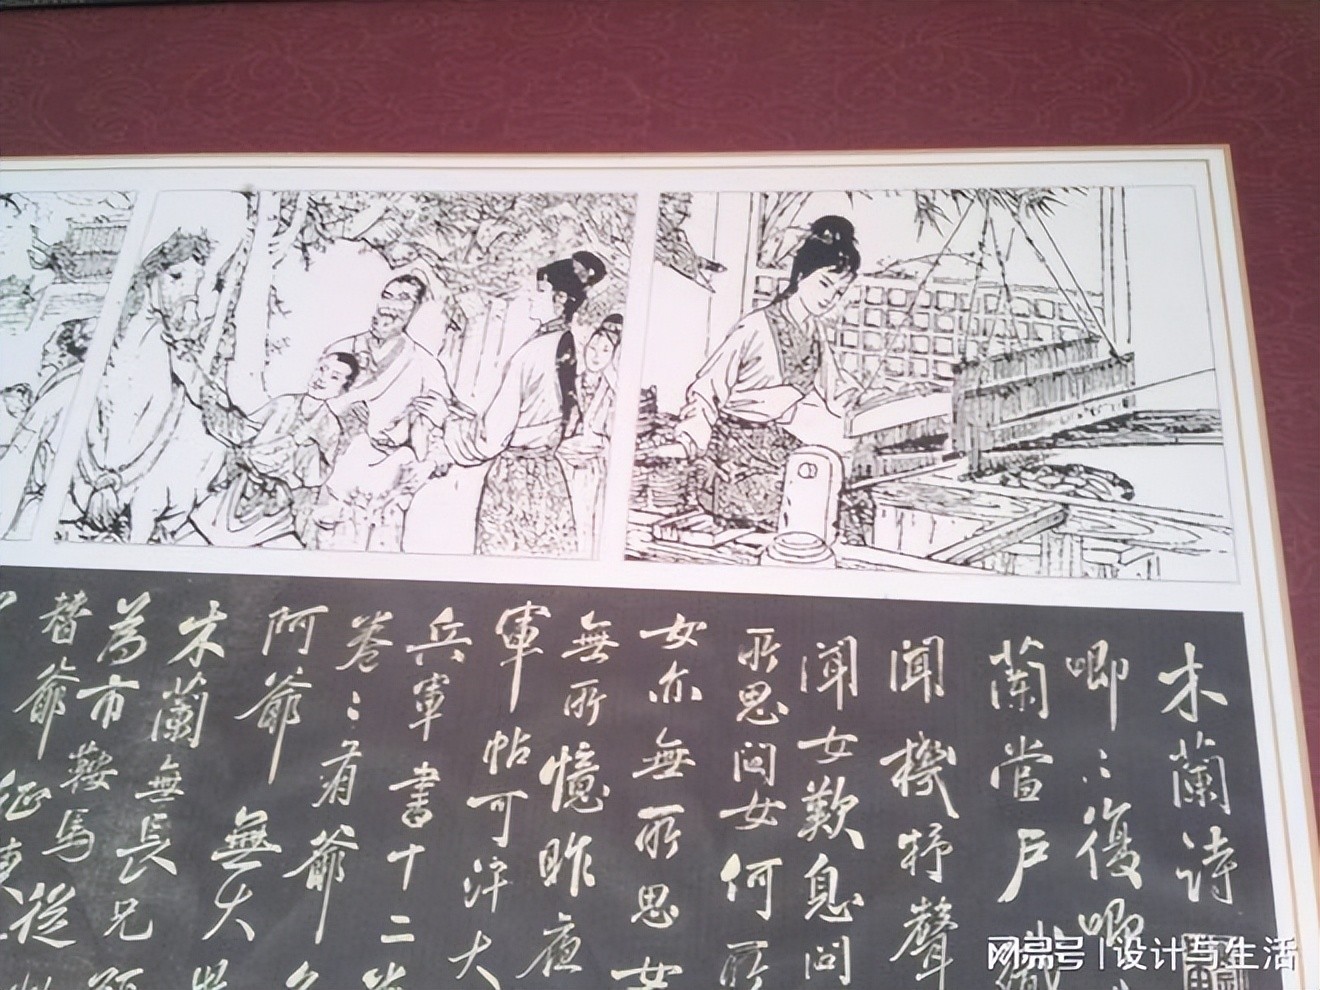 木蘭詩
唧〻復唧
蘭當戶織
聞機杼聲
聞女歎息問
所思問女何所
女亦無所思女
無所憶昨夜
軍帖可汗大
兵軍書十二
卷〻有爺名
阿爺無大兒
木蘭無長兄願
為市鞍馬從
替爺征東
网易号 | 设计与生活